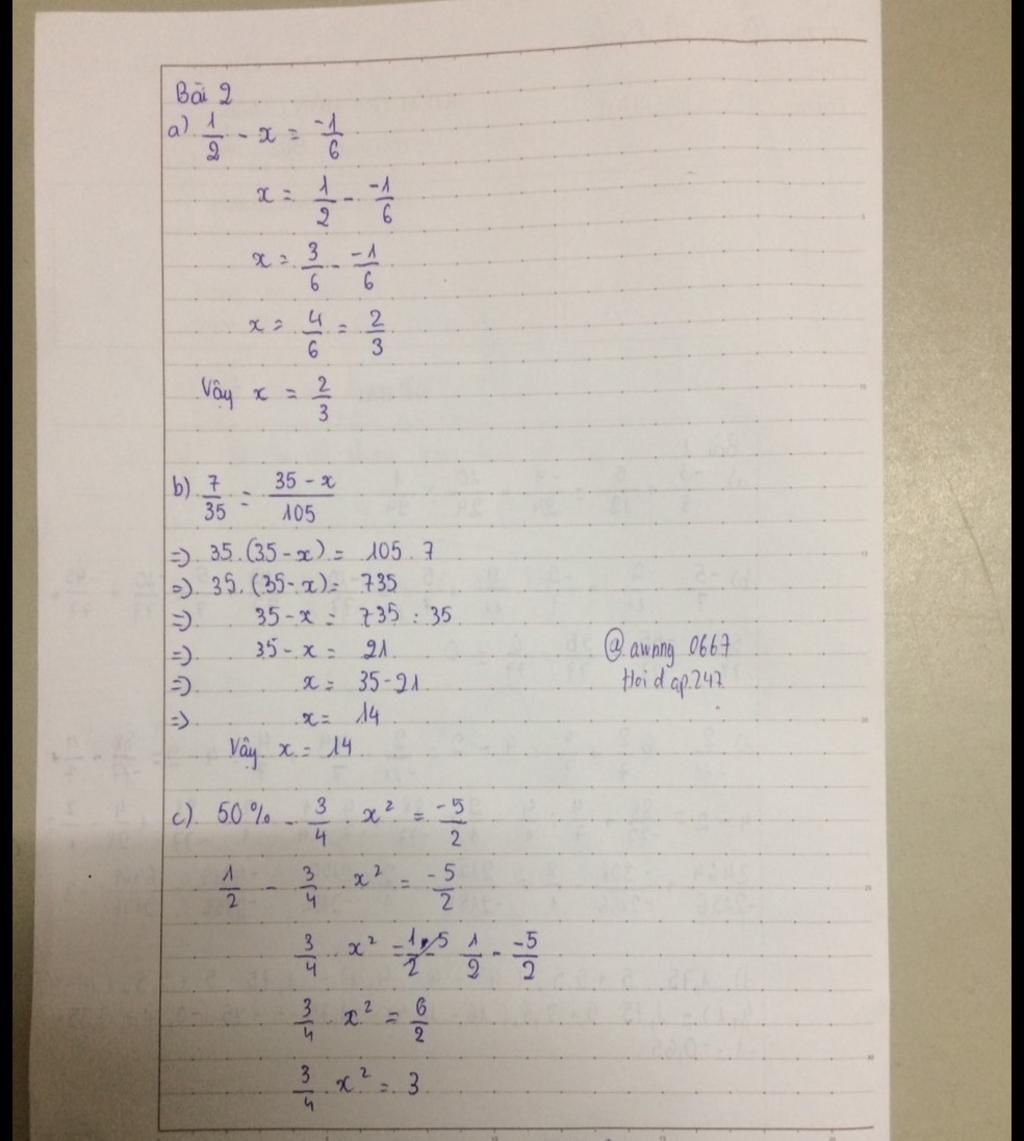 Bài 2
a) 1/2 - x = -1/6
x = 1/2 - -1/6
x = 3/6 - -1/6
x = 4/6 = 2/3
Vậy x = 2/3
b) 7/35 = (35 - x)/105
=> 35.(35-x) = 105.7
=> 35.(35-x) = 735
=> 35-x = 735:35
=> 35-x = 21
=> x = 35-21
=> x = 14
Vậy x = 14
@awnng 0667
Hoidap.247
c) 50% - 3/4 . x² = -5/2
1/2 - 3/4 . x² = -5/2
3/4 . x² = 1/2 - -5/2
3/4 x² = 6/2
3/4 x² = 3